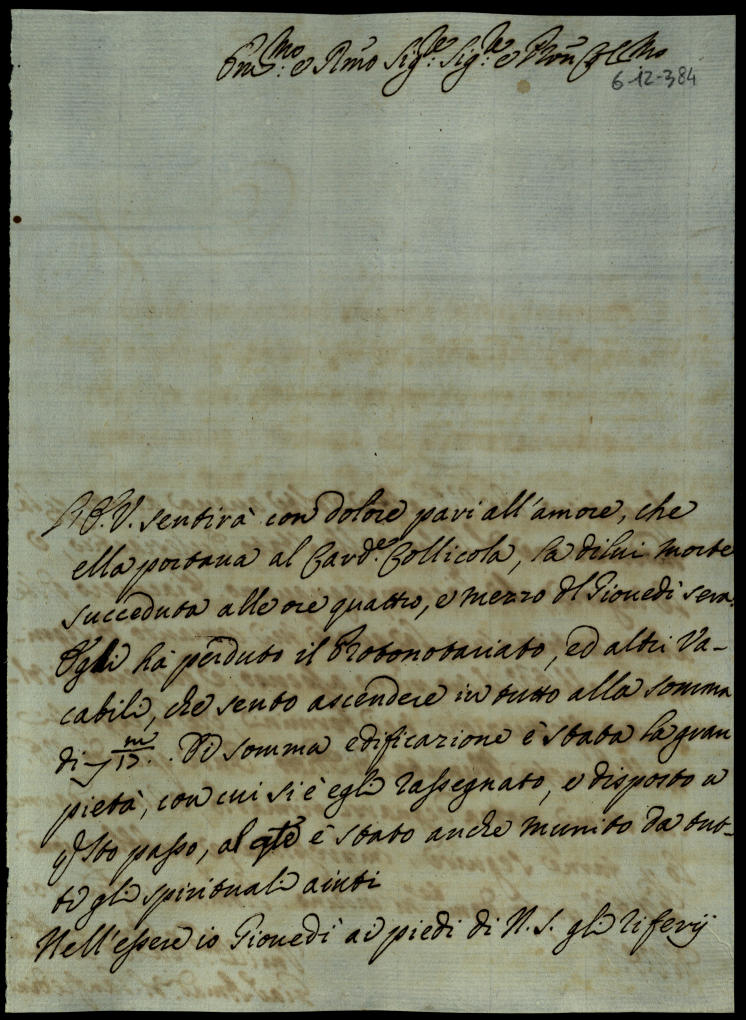 Em.mo e Rmo Sig.re Sig.re e Pron Col.mo
6-12-384
V.E. sentirà con dolore pari all'amore, che
ella portava al Card.e Collicola, la di lui morte
succeduta alle ore quattro, e mezzo dl Giovedì sera.
Egli hà perduto il Protonotariato, ed altri Va-
cabili, che sento ascendere in tutto alla somma
di m/13. Di somma edificazione è stata la gran
pietà, con cui si è egli rassegnato, e disposto a
qsto passo, al qle è stato anche munito da tut-
ti gli spirituali aiuti
Nell'essere io Giovedì ai piedi di N. S. gli riferij